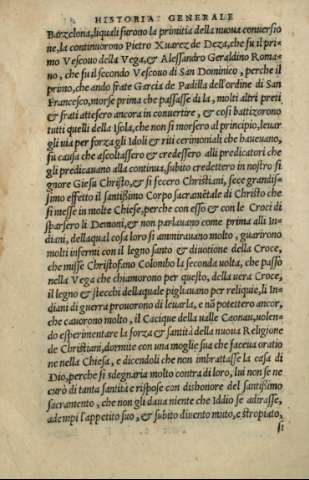 HISTORIA GENERALE
Barzelona, liquali furono la primitia della nuoua conuersio
ne, la continuorono Pietro Xuarez de Deza, che fu il pri⸗
mo Vescouo della Vega, & Alessandro Geraldino Roma⸗
no, che fu il secondo Vescouo di San Dominico, perche il
primo, che ando frate Garcia de Padilla dell'ordine di San
Francesco, morse prima che passasse di la, molti altri preti
& frati attesero ancora in conuertire, & cosi battizorono
tutti quelli della Isola, che non si morsero al principio, leuar
gli uia per forza gli Idoli & riti cerimoniali che haueuano,
fu causa che ascoltassero & credessero alli predicatori che
gli predicauano alla continua, subito credettero in nostro si
gnore Giesu Christo, & si fecero Christiani, fece grandis⸗
simo effetto il santissimo Corpo sacramẽtale di Christo che
si messe in molte Chiese, perche con esso & con le Croci di
sparsero li Demoni, & non parlauano come prima alli In⸗
diani, dellaqual cosa loro si ammirauano molto, guarirono
molti infermi con il legno santo & diuotione della Croce,
che misse Christofano Colombo la seconda uolta, che passo
nella Vega che chiamorono per questo, della uera Croce,
il legno & stecchi dellaquale pigliauano per reliquie, li In⸗
diani di guerra prouorono di leuarla, e nõ potettero ancor,
che cauorono molto, il Cacique della ualle Caonau, uolen⸗
do esperimentare la forza & santità della nuoua Religione
de Christiani, dormite con una moglie sua che faceua oratio
ne nella Chiesa, e dicendoli che non imbrattasse la casa di
Dio, perche si sdegnaria molto contra di loro, lui non se ne
curò di tanta santità e rispose con dishonore del santissimo
sacramento, che non gli daua niente che Iddio se adirasse,
adempi l'appetito suo, & subito diuento muto, e stropiato,
si